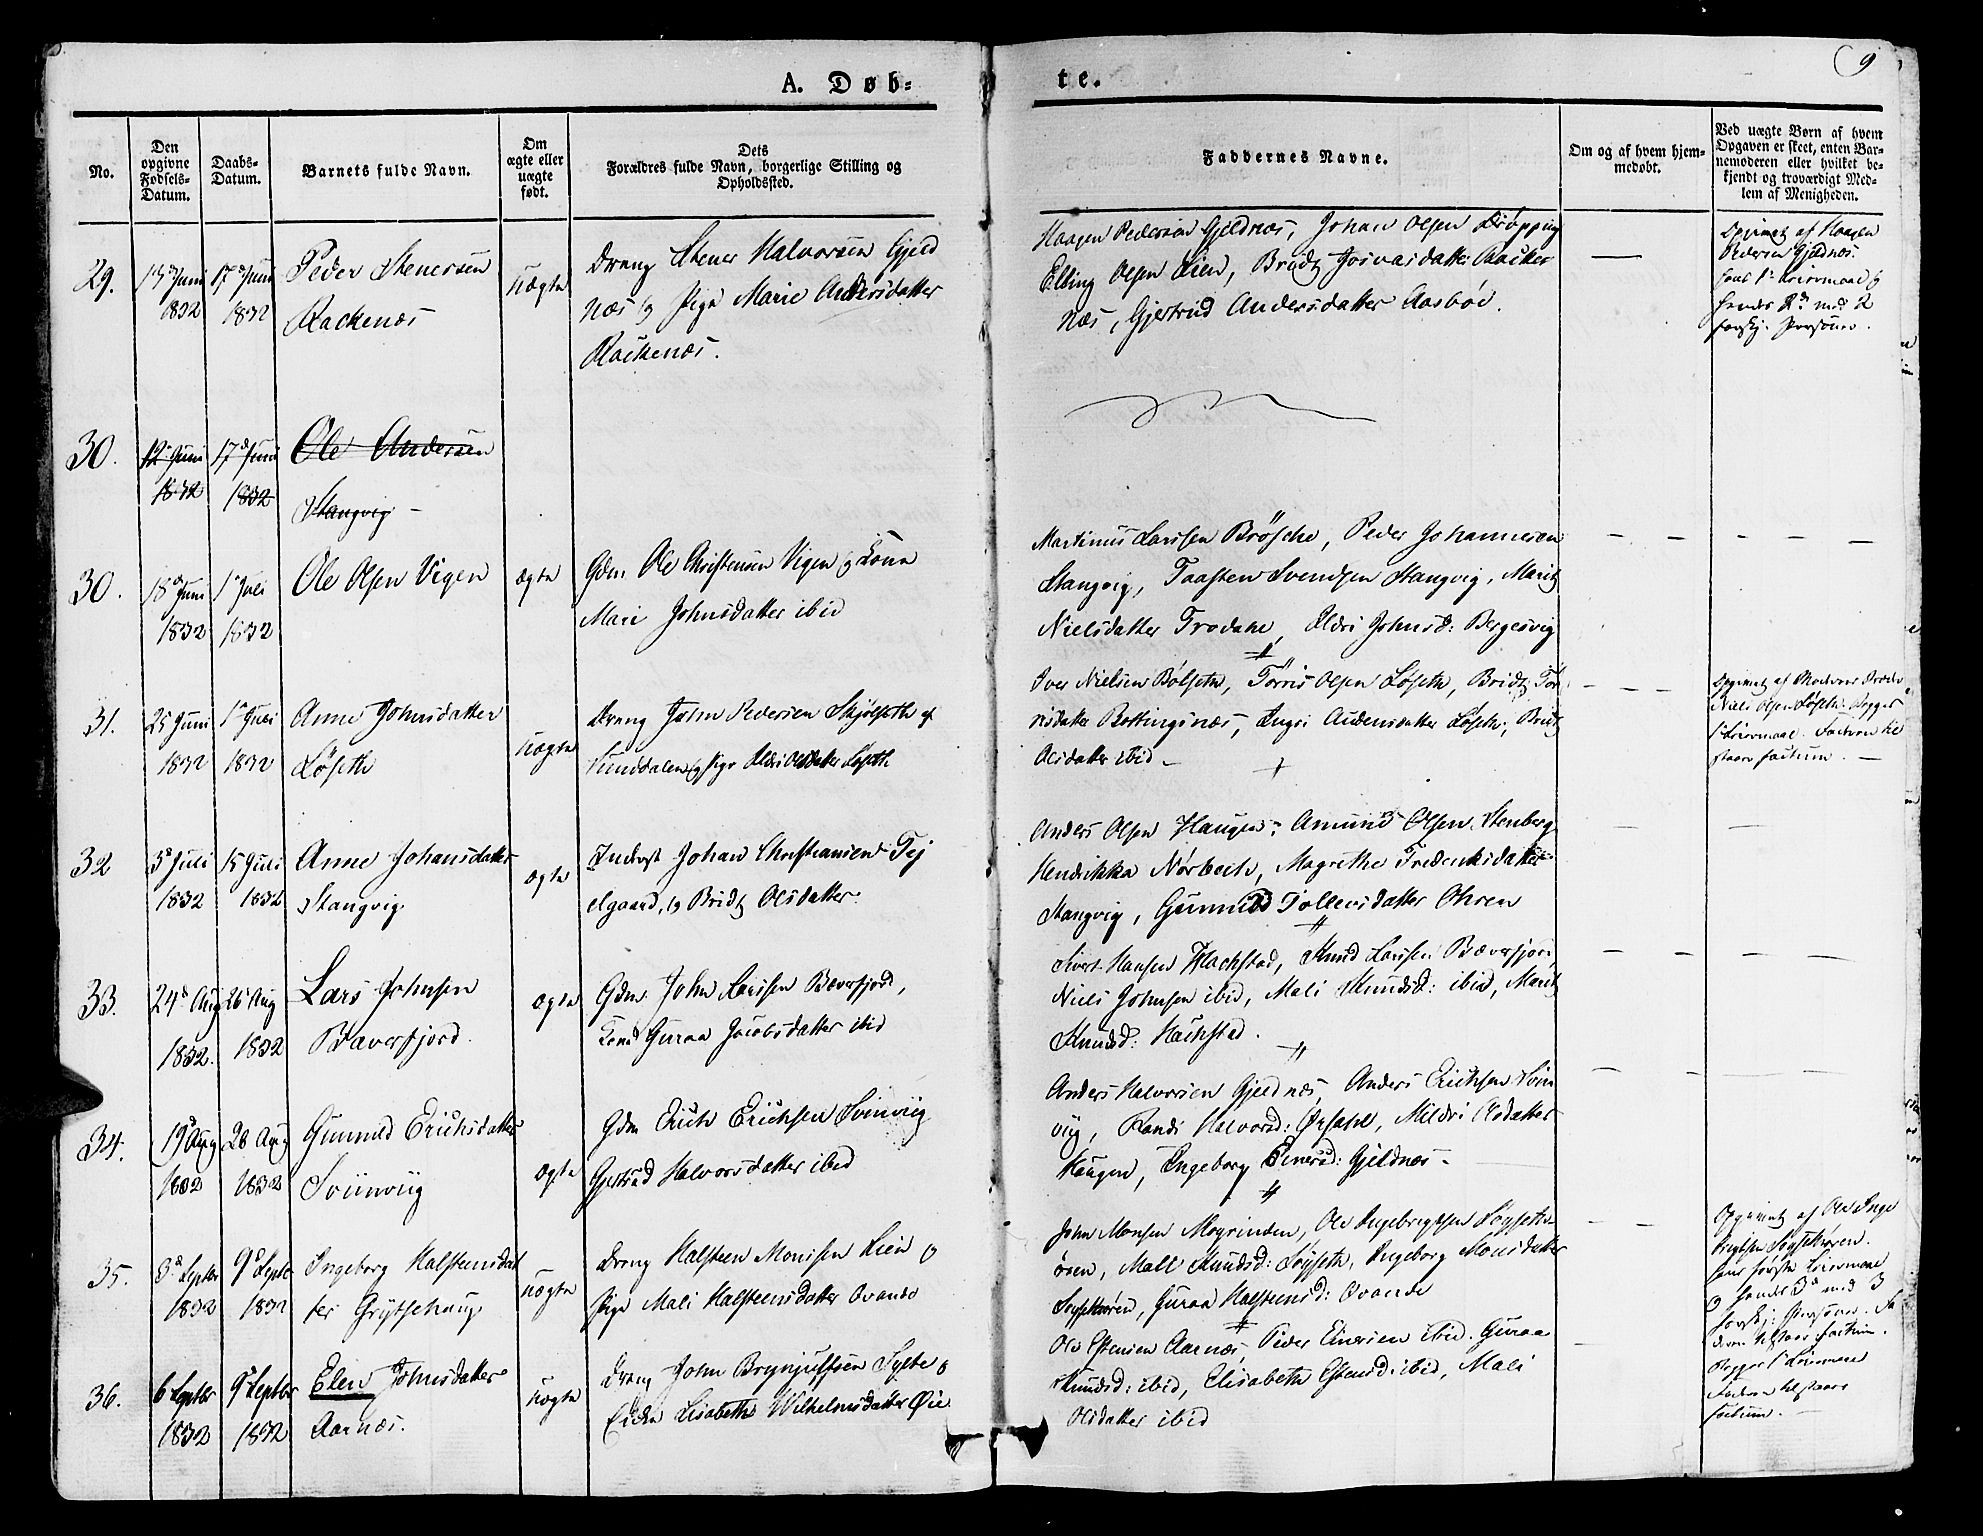 9
A. Døb-
te.
No.
Den opgivne Fødsels-Datum.
Daabs-Datum.
Barnets fulde Navn.
Om ægte eller uægte født.
Dets Forældres fulde Navn, borgerlige Stilling og Opholdssted.
Faddernes Navne.
Om og af hvem hjem-
medøbt.
Ved uægte Børn af hvem
Opgaven er skeet, enten Bar-
nemoderen eller hvilket be-
kjendt og troværdigt Med-
lem af Menigheden.
29.
Juni 1832
17de Juni 1832
Peder Stenersen
Rackenæs
uægte
Dreng Stener Halvorsen Gjeld
næs og Pige Marie Andersdatter
Rackenæs.
Haagen Pedersen Gjeldnæs, Johan Olsen Drøpping
Elling Olsen Lien, Bridtz Josvasdatter Racke
næs, Gjertrud Andersdatter Aasbøe.
Opgivet af Haagen
Pedersen Gjeldnæs.
hans 1te Leiermaal og
hendes 2de med 2
forskj. Personer.
30.
12 Juni 1832
17de Juni 1832
Ole Andersen
Stangvig
30.
18de Juni 1832
1te Juli 1832
Ole Olsen Vigen
ægte
Gdm. Ole Christensen Vigen og Kone
Mari Johnsdatter ibid
Martinus Larssen Brøsche, Peder Johannesen
Stangvig, Taasten Svendsen Stangvig, Marit
Nielsdatter Trodahl, Eldri Johnsd: Bergesvig
31.
25 Juni 1832
1te Juli 1832
Anne Johnsdatter
Løseth
uægte
Dreng John Pedersen Skjølseth af
Sunddalen og Pige Eldri Olsdatter Løseth
Iver Nielsen Bølseth, Tørris Olsen Løseth, Bridtz Tør
risdatter Bottingsnæs, Ingri Andersdatter Løseth, Bridtz
Olsdatter ibid
Opgivet af Moderens Broder
Niels Olsen Løseth. Begges
1te Leiermaal. Faderen til
staaer factum.
32
5te Juli 1832
15 Juli 1832
Anne Johansdatter
Stangvig
ægte
Inderst Johan Christiansen Tej
elgaard, og Bridtz Olsdatter
Anders Olsen Haugen, Amund Olsen Stenberg
Hendrikka Nørbech, Magrethe Frederiksdatter
Stangvig, Gunnild Tollevsdatter Ohren
33.
24de Aug 1832.
26 Aug 1832
Lars Johnsen
Bæverfjord.
ægte
Gdm. John Larssen Bæverfjord,
Kone Guraa Jacobsdatter ibid
Sivert Hansen Hachstad, Knud Larssen Bæverfjord,
Niels Johnsen ibid, Mali Knudsd: ibid, Marit
Knudsd: Hachstad.
34.
19de Aug 1832
26 Aug 1832
Gunnild Erichsdatter
Sviinviig
ægte
Gdm Erich Erichsen Sviinviig
Gjertrud Halvorsdatter ibid
Anders Halvorsen Gjeldnæs, Anders Erichsen Sviin
viig, Randi Halvorsd: Ørsahl, Mildri Olsdatter
Haugen, Ingeborg Einersd: Gjeldnæs
35.
3de Septbr 1832
9de Septbr 1832
Ingeborg Halsteinsdat
ter Grytsehaug
uægte
Dreng Halsteen Monssen Lien og
Pige Mali Halsteensdatter Ovande
John Monsen Mogrinden, Ole Ingebrigtsen Søyseth
øren, Mali Knudsd: Søyseth, Ingeborg Monsdatter
Søysethøren, Guraa Halsteensd: Ovande
Opgivet af Ole Inge
brigtsen Søysethøren.
hans første Leiermaal
og hendes 3de med 3
forskj: Personer. Fa
deren tilstaaer factum.
36.
6 Septbr 1832
9de Septbr 1832
Elen Johnsdatter
Aarnæs.
uægte
Dreng John Brynjulfsen Sylte og
Enke Lisabeth Wilhelmsdatter Øie
Ole Estensen Aarnæs, Peder Einersen ibid. Guraa
Knudsd: ibid, Elisabeth Estensd: ibid, Mali
Olsdatter ibid
Begges 1te Leiermaal
Faderen tilstaaer
factum.